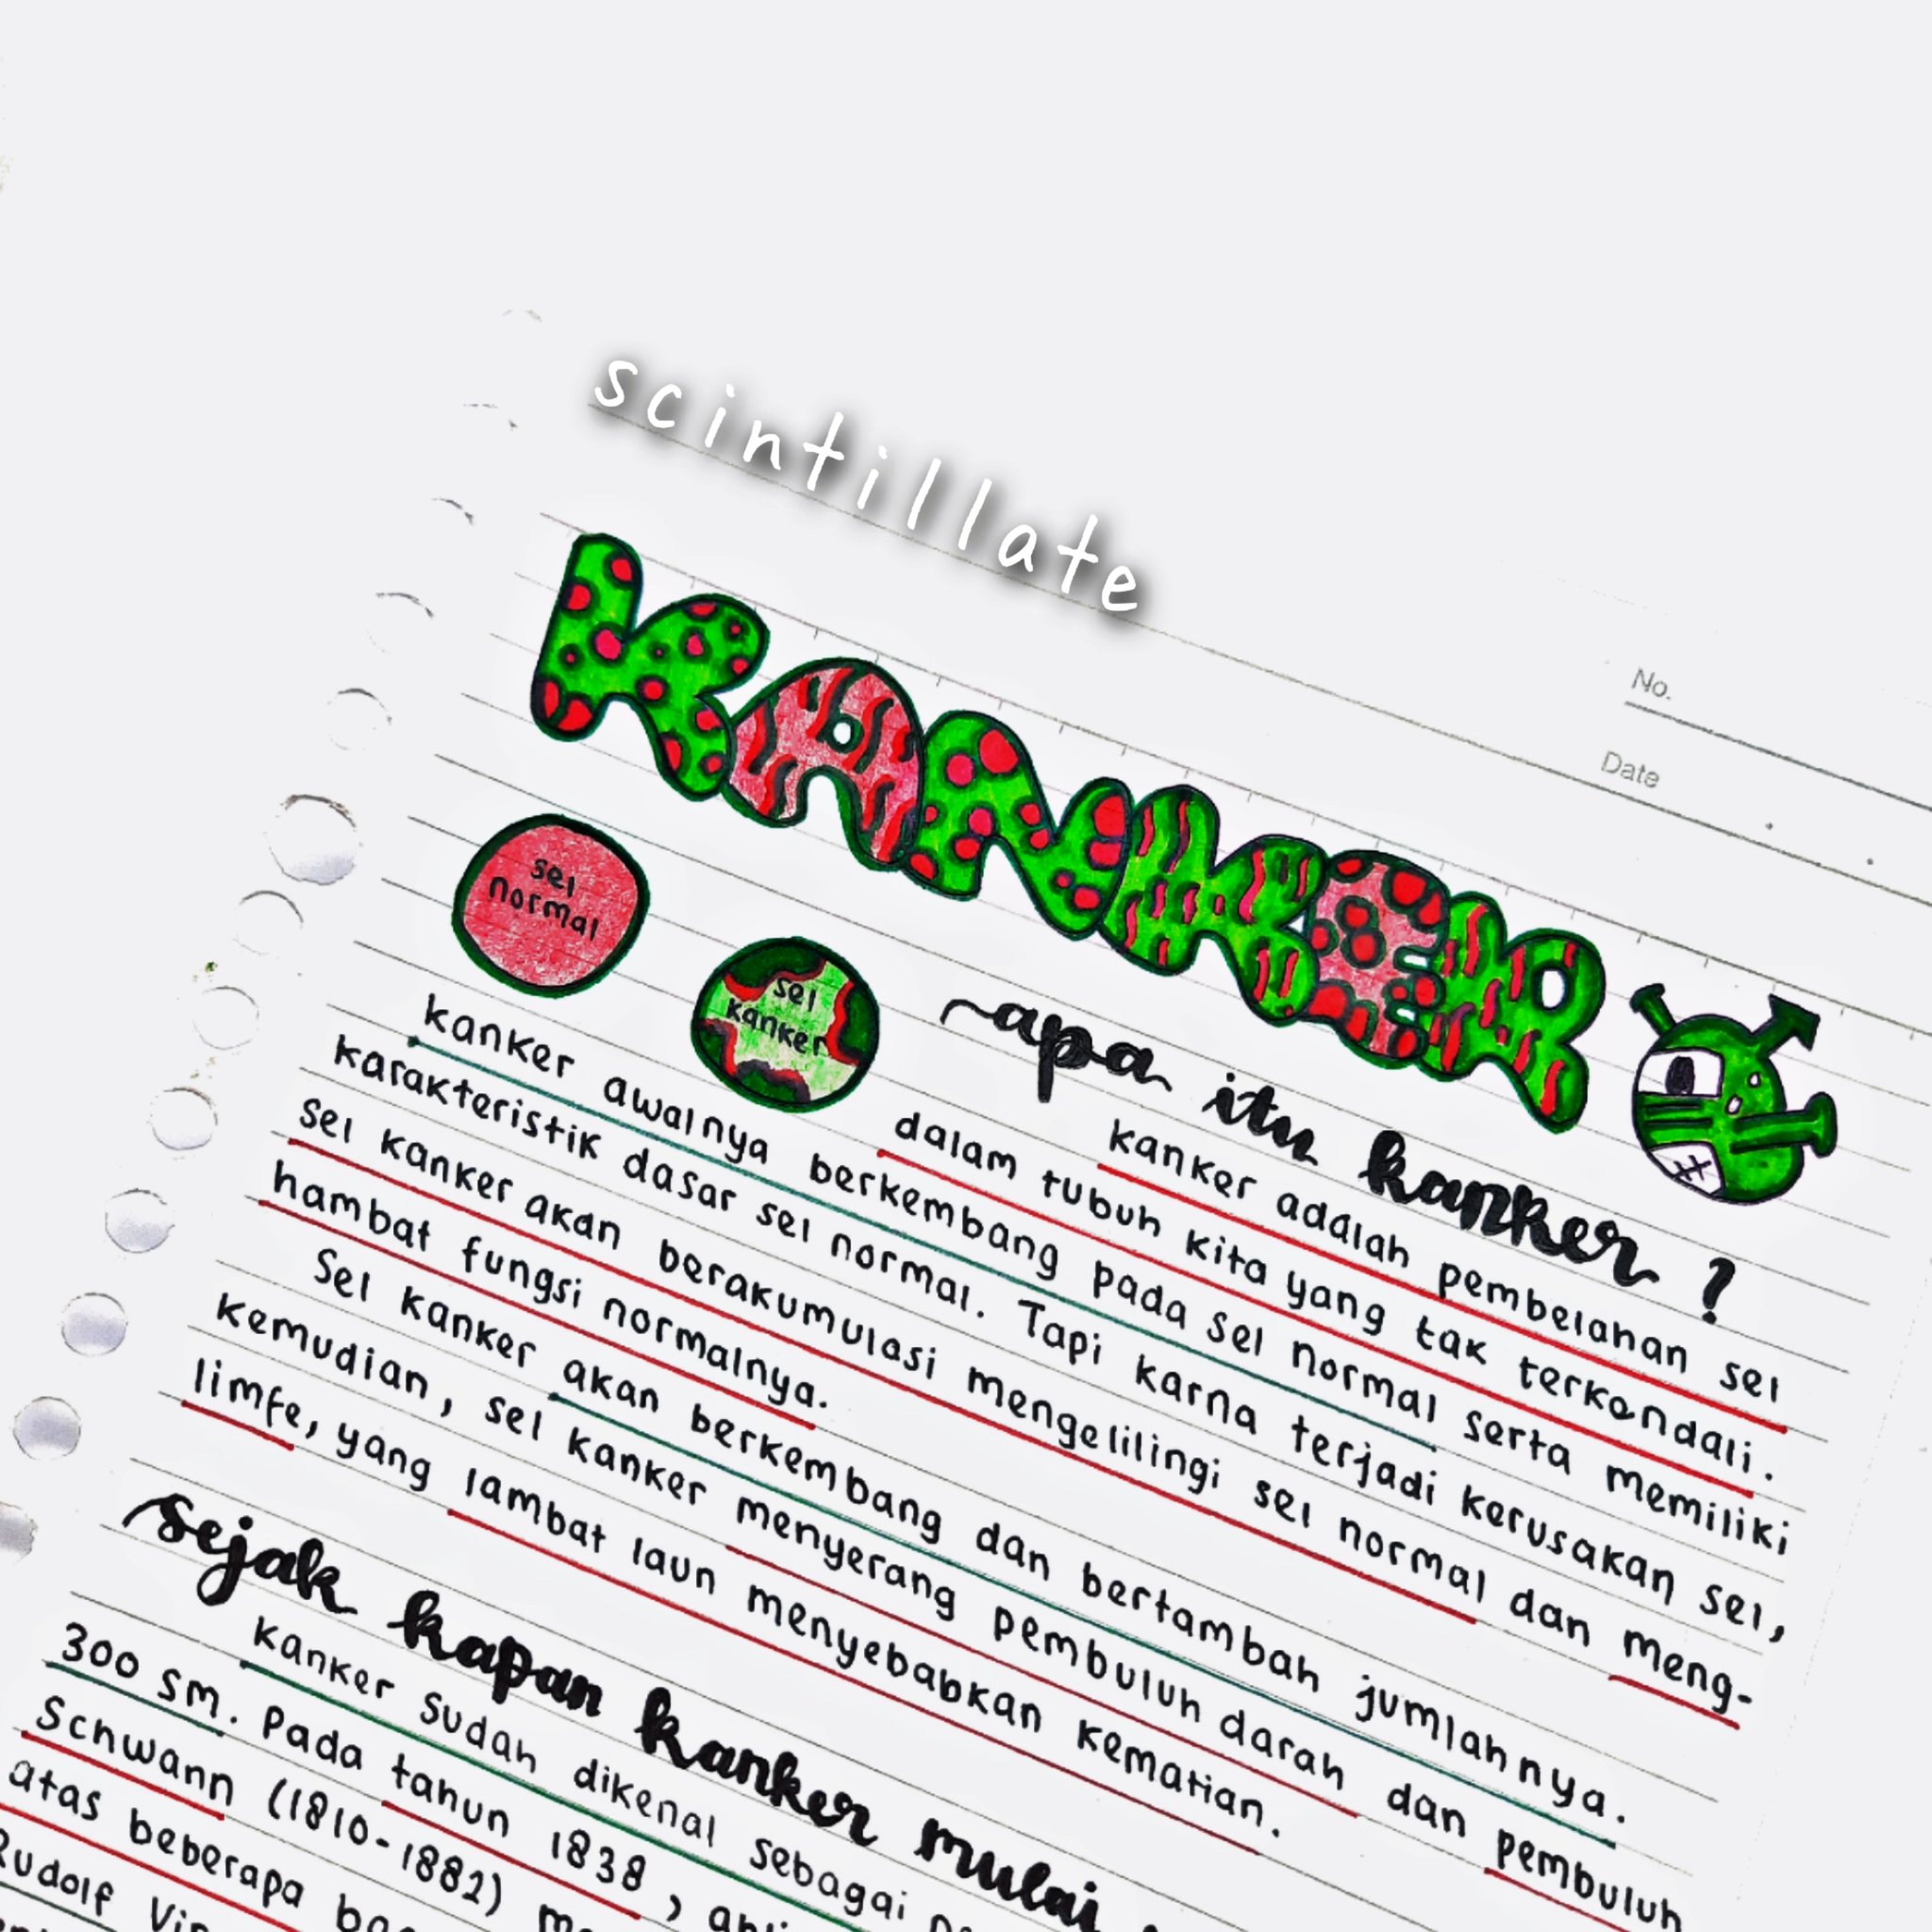 scintillate
No.
Date
KANKER
sel
normal
sel
kanker
apa itu kanker ?
kanker adalah pembelahan sel
dalam tubuh kita yang tak terkendali.
kanker awalnya berkembang pada sel normal serta memiliki
karakteristik dasar sel normal. Tapi karna terjadi kerusakan sel,
sel kanker akan berakumulasi mengelilingi sel normal dan meng-
hambat fungsi normalnya.
Sel kanker akan berkembang dan bertambah jumlahnya.
Kemudian, sel kanker menyerang pembuluh darah dan pembuluh
limfe, yang lambat laun menyebabkan kematian.
sejak kapan kanker mulai
kanker sudah dikenal sebagai
300 SM. Pada tahun 1838,
Schwann (1810-1882)
atas beberapa
Rudolf